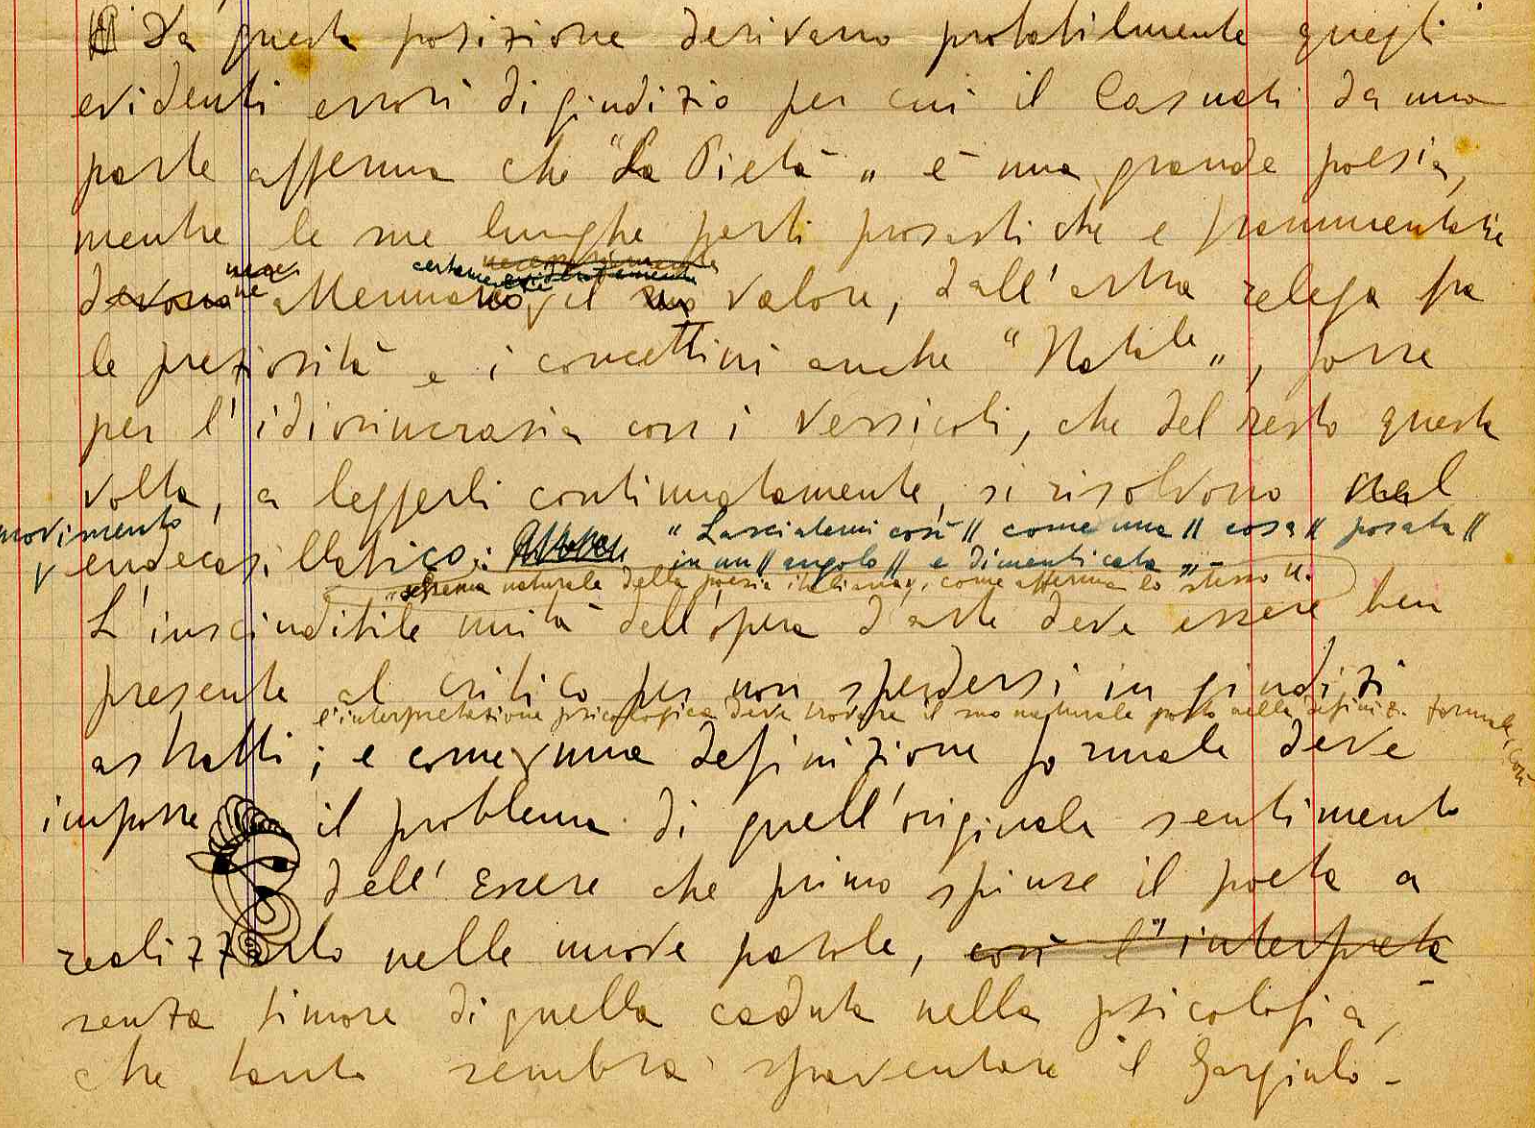 Da questa posizione derivano probabilmente quegli
evidenti errori di giudizio per cui il Casnati da una
parte afferma che "La Pietà" è una grande poesia,
mentre le sue lunghe parti prosastiche e frammentarie
necessariamente
certamente evidentemente
devono ne attenuano il suo valore, dall'altra relega fra
le preziosità e i concettini anche "Natale", forse
per l'idiosincrasia con i versicoli, che del resto questa
volta, a leggerli continuatamente, si risolvono nel
movimento
endecasillabico: "Lasciatemi così // come una // cosa // posata //
in un // angolo // e dimenticata"
schema naturale della poesia italiana, come afferma lo stesso U.
L'inscindibile unità dell'opera d'arte deve essere ben
presente al critico per non sperdersi in giudizi
l'interpretazione psicologica deve trovare il suo naturale posto nella definiz. formale, così
astratti; e come una definizione formale deve
imporre il problema di quell'originale sentimento
dell'Essere che primo spinse il poeta a
realizzarlo nelle nuove parole, così l'interpreta
senza timore di quella caduta nella psicologia,
che tanto sembra spaventare il Gargiulo-